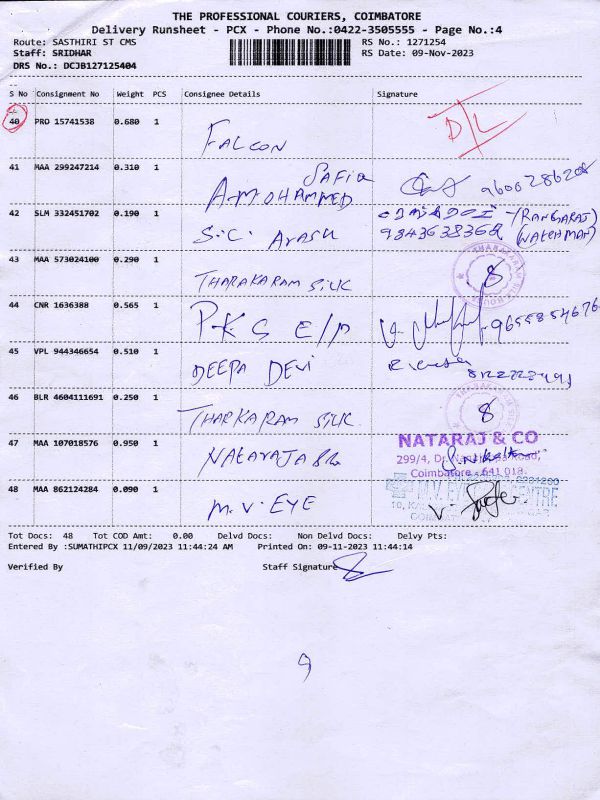 THE PROFESSIONAL COURIERS, COIMBATORE
Delivery Runsheet - PCX - Phone No.:0422-3505555 - Page No.:4
Route: SASTHIRI ST CMS RS No.: 1271254
Staff: SRIDHAR RS Date: 09-Nov-2023
DRS No.: DCJB127125404
S No Consignment No Weight PCS Consignee Details Signature
40 PRO 15741538 0.680 1 FALCON D/L
41 MAA 299247214 0.310 1 SAFIA
A-MOHAMMED
42 SLM 332451702 0.190 1 S.C. Arasu (RANGARAJ)
9843638368 (WATCHMAN)
43 MAA 573024100 0.290 1 THARAKARAM SILK 8
44 CNR 1636388 0.565 1 P.K.S E/P 9655854676
45 VPL 944346654 0.510 1 DEEPA DEVI
46 BLR 4604111691 0.250 1 THARKARAM SILK 8
NATARAJ & CO
47 MAA 107018576 0.950 1 NATARAJA 299/4, Dr.
Coimbatore - 641 018.
48 MAA 862124284 0.090 1 M.V. EYE M.V. EYE CENTRE
Tot Docs: 48 Tot COD Amt: 0.00 Delvd Docs: Non Delvd Docs: Delvy Pts:
Entered By :SUMATHIPCX 11/09/2023 11:44:24 AM Printed On: 09-11-2023 11:44:14
Verified By Staff Signature
9